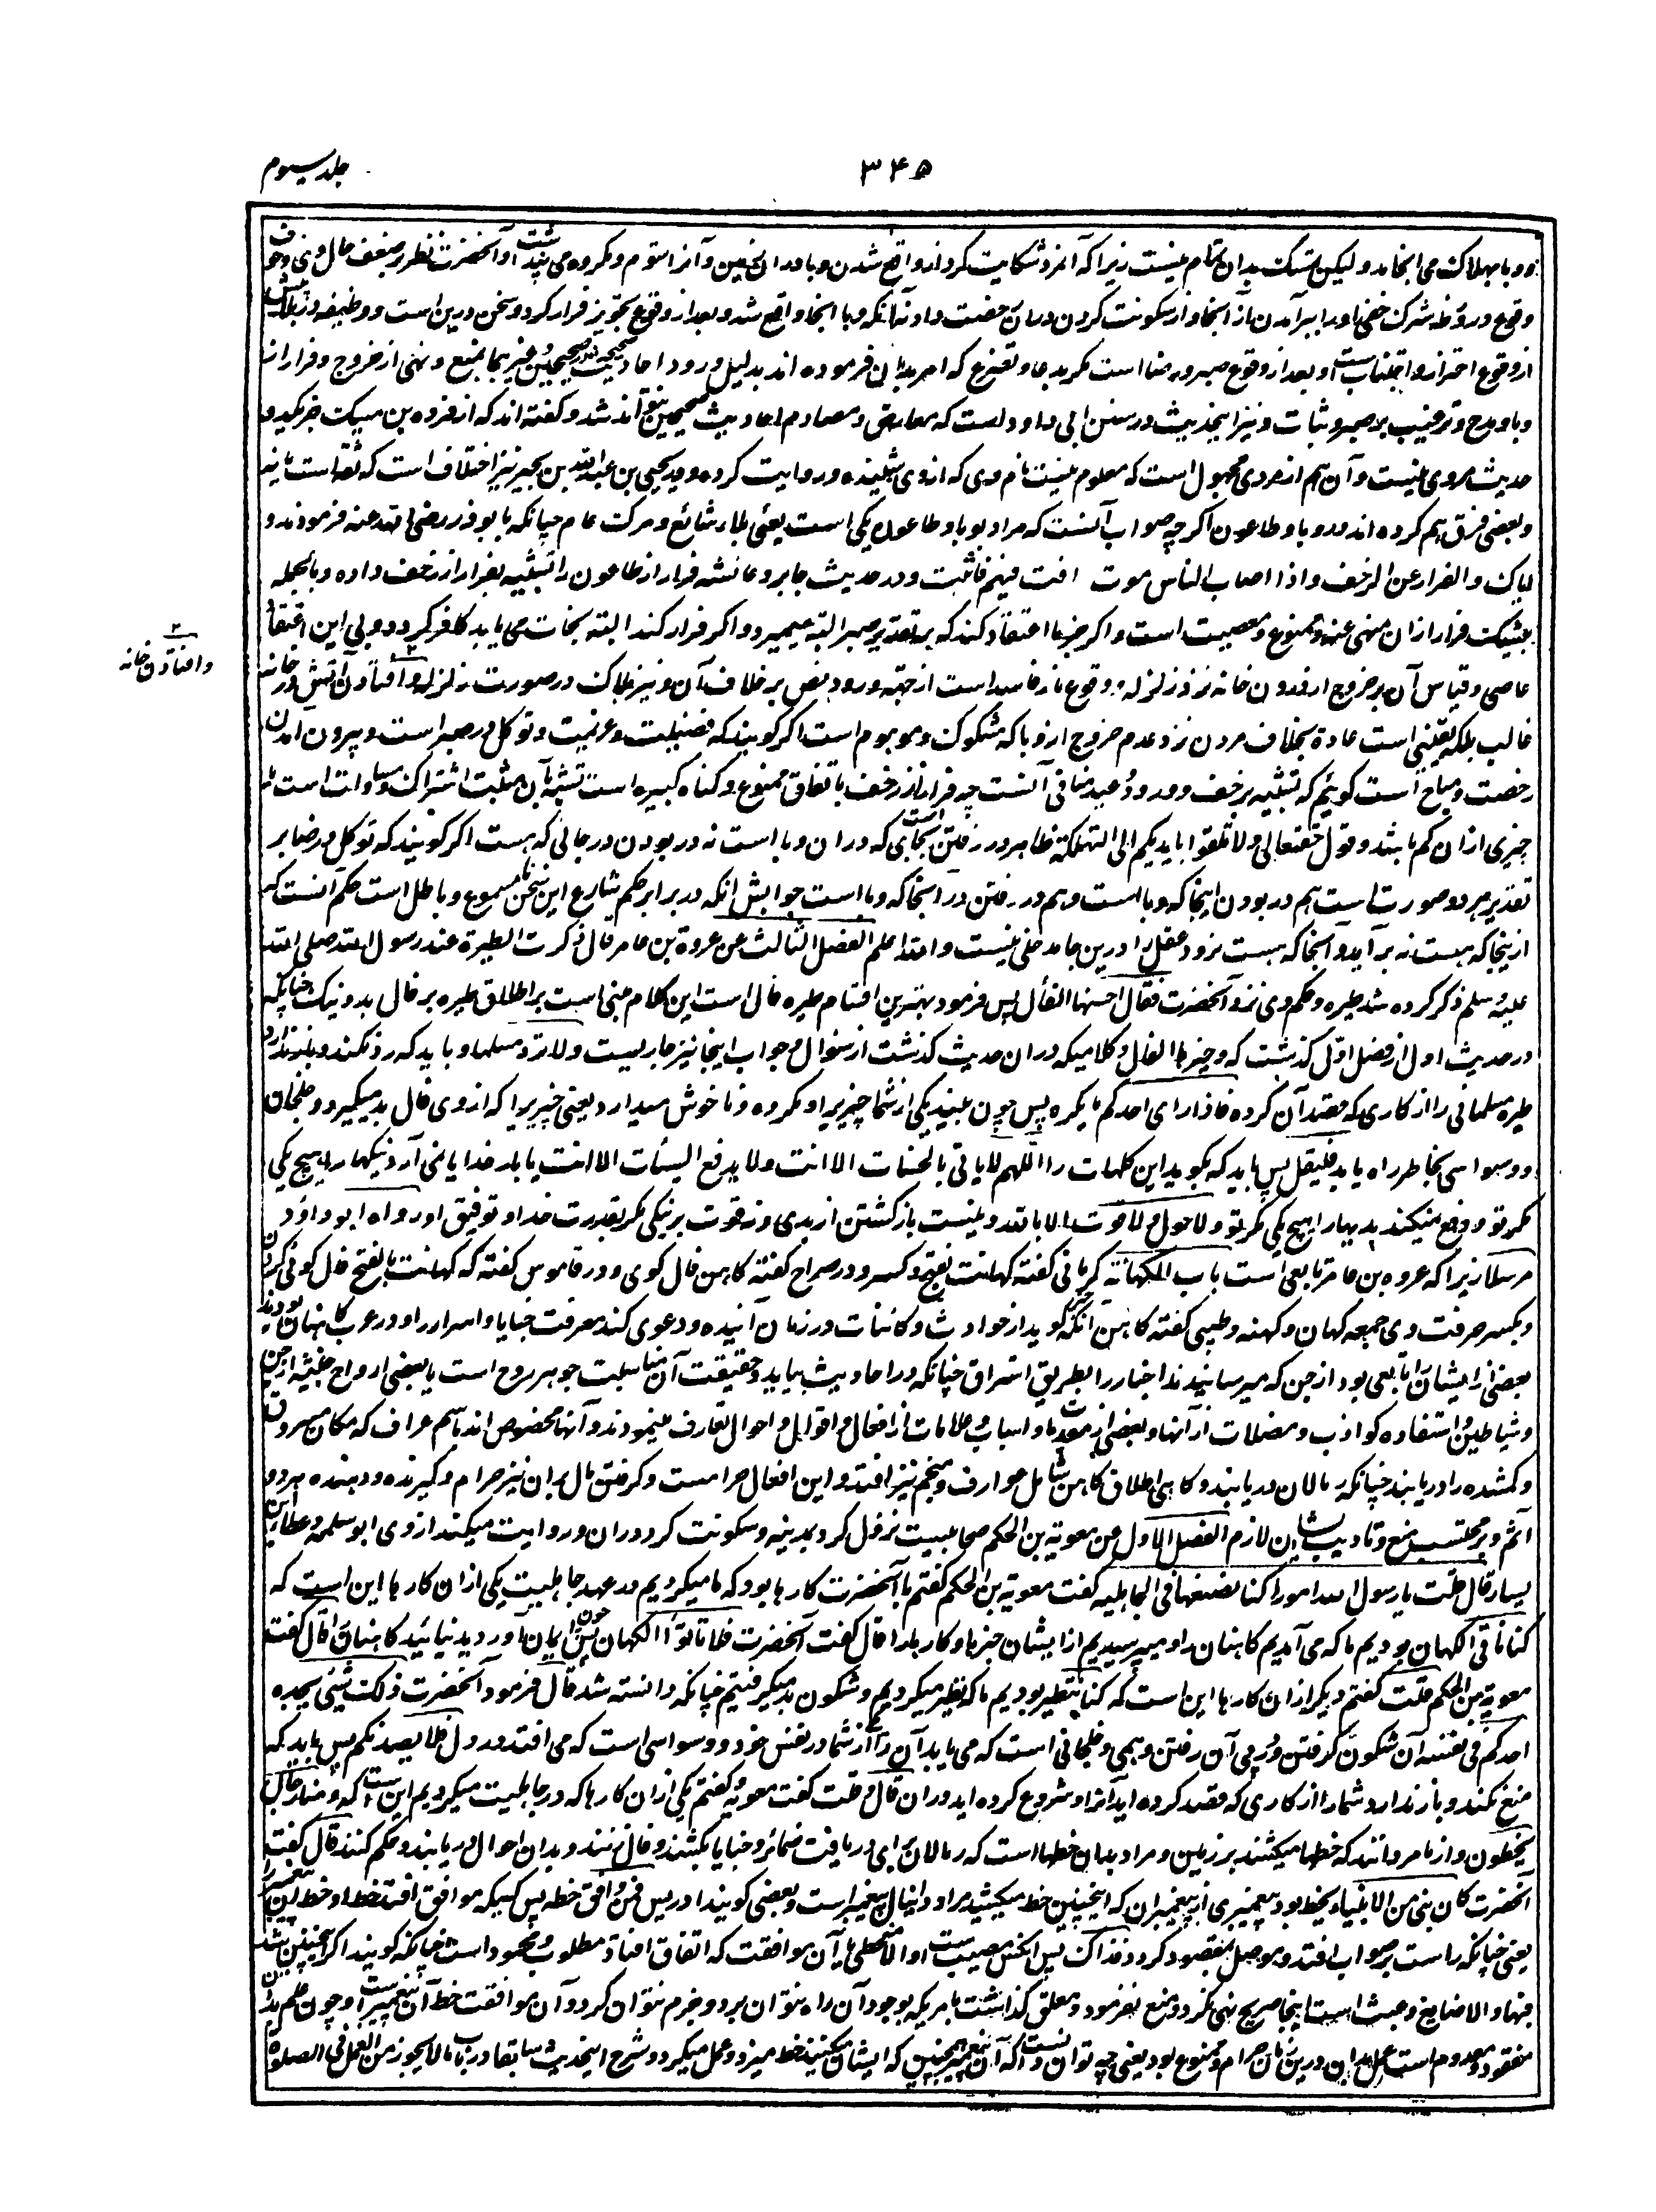 جلد سیوم
۳۴۵
ووبا بهلاکت می انجامد ولیکن تمسک بدان تمام نیست زیرا که آنمرد شکایت کرد از واقع شدن وبا دران زمین و آنرا شوم و مکروه می
وقوع در ورطه شرک خفی اورا ببرآمدن از آنجا و از سکونت کردن دران رخصت داد نه آنکه وبا آنجا واقع شد و بعد از وقوع تجویز فرار کرد و سخن درین است و وظیفه در بلا پیش
از وقوع احتراز و اجتناب است و بعد از وقوع صبر و رضا است مگر بدعا و تضرع که امر بدان فرموده اند بدلیل ورود احادیث صحیحه در صحیحین و غیر هما بمنع و نهی از خروج و فرار از
وبا و مدح و ترغیب بر صبر و ثبات و نیز اینحدیث در سنن ابی داود است که معارض و مصادم احادیث صحیحین نتواند شد و گفته اند که از فروه بن مسیک جز یکدو
حدیث مروی نیست و آن هم از مردی مجهول است که معلوم نیست نام وی که از وی شنیده و روایت کرده و در یحیی بن عبدالله بن بحیر نیز اختلاف است که ثقه است یا نه
و بعضی فرق هم کرده اند در وبا و طاعون اگر چه صواب آنست که مراد بوبا و طاعون یکی است یعنی بلاء شائع و مرگ عام چنانکه بابوذر رضی الله عنه فرمودند و
ایاک والفرار عن الزحف و اذا اصاب الناس موت انت فیهم فاثبت و در حدیث جابر و عائشه فرار از طاعون را تشبیه بفرار از زحف داده و بالجمله
بیشک فرار ازان منهی عنه و ممنوع و معصیت است و اگر جزما اعتقاد کند که بر تقدیر صبر البته میمیرد و اگر فرار کند البته نجات می یابد کافر گردد و بی این اعتقاد
عاصی و قیاس آن بر خروج از درون خانه نزد زلزله و وقوع نار فاسد است از جهه ورود نص بر خلاف آن و نیز هلاک در صورت زلزله و افتادن آتش در خانه
۲ وافتادن خانه
غالب بلکه یقینی است عادة بخلاف مردن نزد عدم خروج از وبا که مشکوک و موهوم است اگر گویند که فضیلت و عزیمت و توکل در صبر است و بیرون آمدن
رخصت و مباح است گوئیم که تشبیه بزحف و ورود وعید منافی آنست چه فرار از زحف باتفاق ممنوع و گناه کبیره است تشبیه بآن مثبت اشتراک و مساوات است یا
چیزی ازان کم باشد و قول حقتعالی ولا تلقوا بایدیکم الی التهلکة ظاهر در رفتن بجای است که دران وبا است نه در بودن در جائی که هست اگر گویند که توکل و رضا بر
تقدیر هر دو صورت است هم در بودن اینجا که وبا است و هم در رفتن در آنجا که وبا است جوابش آنکه در برابر حکم شارع این سخن نامسموع و باطل است حکم آنست که
ازینجا که هست نه بر آید و آنجا که هست نرود عقل را درین جا مدخلی نیست والله اعلم الفصل الثالث عن عروة بن عامر قال ذکرت الطیرة عند رسول الله صلی الله
علیه وسلم ذکر کرده شد طیره و حکم وی نزد آنحضرت فقال احسنها الفأل پس فرمود بهترین اقسام طیره فال است این کلام مبنی است بر اطلاق طیره بر فال بد و نیک چنانکه
در حدیث اول از فصل اول گذشت که و خیرها الفال و کلامیکه دران حدیث گذشت از سؤال و جواب اینجا نیز جاریست ولا ترد مسلما و باید که رد نکند و باز ندارد
طیره مسلمانی را از کاری که قصد آن کرده فاذا رای احدکم ما یکره پس چون ببیند یکی از شما چیزی را و مکروه و ناخوش میدارد یعنی چیزیرا که از وی فال بد میگیرد و خلجان
و وسواسی بخاطر راه یابد فلیقل پس باید که بگوید این کلمات را اللهم لا یاتی بالحسنات الا انت ولا یدفع السیئات الا انت یا بار خدایا نمی آرد نیکیها را هیچ یکی
مگر تو و دفع نمیکند بدیهارا هیچ یکی مگر تو ولا حول ولا قوت الا بالله و نیست بازگشتن از بدی و نه قوت بر نیکی مگر بقدرت خدا و توفیق او رواه ابو داؤد
مرسلا زیرا که عروه بن عامر تابعی است باب الکهانة کرمانی گفته کهانت بفتح و کسر و در صراح گفته کاهن فال گوی و در قاموس گفته که کهانت بالفتح فال گوئی کردن
و بکسر حرفت وی جمعه کهان و کهنه و طیبی گفته کاهن آنکه خبر گوید از حوادث و کائنات در زمان آینده و دعوی کند معرفت خبایا و اسرار را و در عرب کاهنان بودند
بعضی از ایشان را تابعی بود از جن که میرسانیدند اخبار را بطریق استراق چنانکه در احادیث بیاید و حقیقت آن مناسبت جوهر روح است یا بعضی ارواح خبیثه از جن
و شیاطین و استفاده کواذب و مضلات از آنها و بعضی بمقدمات و اسباب و علامات از افعال و اقوال و احوال تعارف مینمودند و آنها مخصوص اند باسم عراف که مکان مسروق
و گمشده را دریابند چنانکه رمالان دریابند و گاهی اطلاق کاهن شامل عراف و منجم نیز افتد و این افعال حرامست و گرفتن مال بران نیز حرام و گیرنده و دهنده هر دو
آثم و بر محتسب منع و تادیب ایشان لازم الفصل الاول عن معویة بن الحکم صحابیست نزول کرد بمدینه و سکونت کرد دران و روایت میکند از وی ابو سلمه و عطاء بن
یسار قال قلت یا رسول الله امورا کنا نصنعها فی الجاهلیه گفت معویة بن الحکم گفتم بآنحضرت کارها بود که ما میکردیم در عهد جاهلیت یکی ازان کارها این است که
کنا ناتی الکهان بودیم ما که می آمدیم کاهنان را و میپرسیدیم از ایشان خبرها و کارها را قال گفت آنحضرت فلا تاتوا الکهان پس چون ایمان آوردید نیائید کاهنان را قال گفت
معویة بن الحکم قلت گفتم دیگر ازان کارها این است که کنا نتطیر بودیم ما که تطیر میکردیم و شگون بد میگرفتیم چنانکه دانسته شد قال فرمود آنحضرت ذلک شئی یجده
احدکم فی نفسه آن شگون گرفتن و در پی آن رفتن وهمی و خلجانی است که می یابد آن را یکی از شما در نفس خود و وسواسی است که می افتد در دل فلا یصدنکم پس باید که
منع نکند و باز ندارد شما را از کاری که قصد کرده اید آنرا و شروع کرده اید دران قال قلت گفت معویه گفتم یکی ازان کارها که در جاهلیت میکردیم این است که و منا رجال
یخطون و از ما مردانند که خطها میکشند بر زمین و مراد بدان خطها است که رمالان برای دریافت ضمائر و خبایا بکشند و فال زنند و بدان احوال دریابند و حکم کنند قال گفت
آنحضرت کان نبی من الانبیاء یخط بود پیغمبری از پیغمبران که اینچنین خط میکشید مراد دانیال پیغمبر است و بعضی گویند ادریس فمن وافق خطه پس کسیکه موافق افتد خط او خط آن پیغمبر را
یعنی چنانکه راست بر صواب افتد و موصل بمقصود گردد فذاک پس آنکس مصیب است و الا مخطی یا آن موافقت که اتفاق افتاد مطلوب و محمود است چنانکه گویند اگر اینچنین شد
فبها و الا ضایع و عبث است اینجا صریح نهی نکرد و منع نفرمود و معلق گذاشت بامریکه بوجود آن راه نتوان برد و جزم نتوان کرد و آن موافقت خط آن پیغمبر است و چون علم بدان
مفقود و معدوم است عمل بدان درین زمان حرام و ممنوع بود یعنی چه توان دانست که آن پیغمبر همچنین که ایشان میکنند خط میزد و عمل میکرد و شرح اینحدیث سابقا در باب ما لا یجوز من العمل فی الصلوة